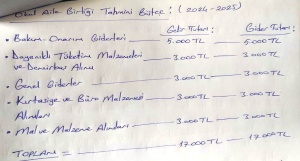 Okul Aile Birliği Tahmini Bütçe: (2024-2025)
Gelir Tutarı: Gider Tutarı:
• Bakım-Onarım Giderleri 5.000 TL 5.000 TL
• Dayanıklı Tüketim Malzemeleri ve Demirbaş Alımı 3.000 TL 3.000 TL
• Genel Giderler 3.000 TL 3.000 TL
• Kırtasiye ve Büro Malzemesi Alımları 3.000 TL 3.000 TL
• Mal ve Malzeme Alımları 3.000 TL 3.000 TL
TOPLAM = 17.000 TL 17.000 TL